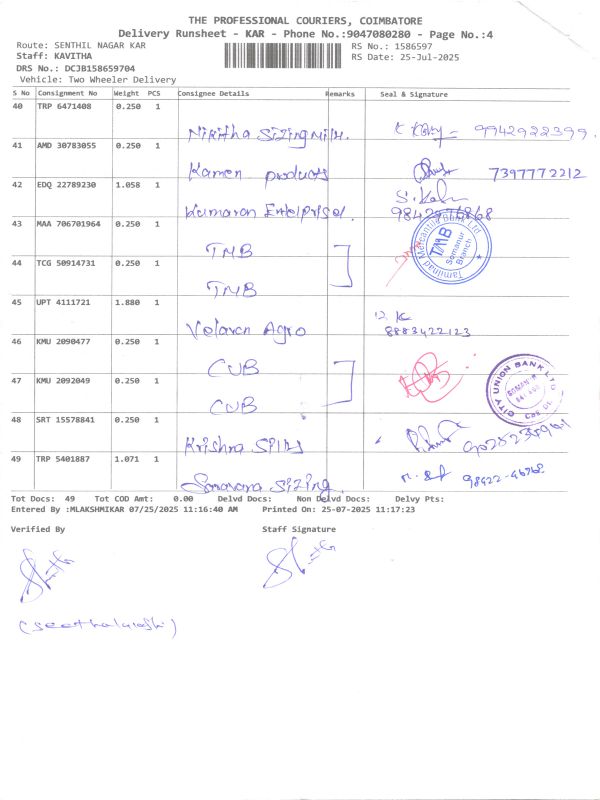 THE PROFESSIONAL COURIERS, COIMBATORE
Delivery Runsheet - KAR - Phone No.:9047080280 - Page No.:4
Route: SENTHIL NAGAR KAR
RS No.: 1586597
Staff: KAVITHA
RS Date: 25-Jul-2025
DRS No.: DCJB158659704
Vehicle: Two Wheeler Delivery
S No Consignment No Weight PCS Consignee Details Remarks Seal & Signature
40 TRP 6471408 0.250 1
Nikitha Sizing Mills. 9942922399.
41 AMD 30783055 0.250 1
Kamen products 7397772212
42 EDQ 22789230 1.058 1
Kumaran Enterprises.
43 MAA 706701964 0.250 1
TMB
Tamilnad Mercantile Bank Ltd
TMB
Somanur
Branch
44 TCG 50914731 0.250 1
TMB
45 UPT 4111721 1.880 1
Velavan Agro 8883422123
46 KMU 2090477 0.250 1
CUB
CITY UNION BANK LTD
47 KMU 2092049 0.250 1
CUB
48 SRT 15578841 0.250 1
Krishna
49 TRP 5401887 1.071 1
Sizing. 98422-46768
Tot Docs: 49 Tot COD Amt: 0.00 Delvd Docs: Non Delvd Docs: Delvy Pts:
Entered By :MLAKSHMIKAR 07/25/2025 11:16:40 AM Printed On: 25-07-2025 11:17:23
Verified By Staff Signature